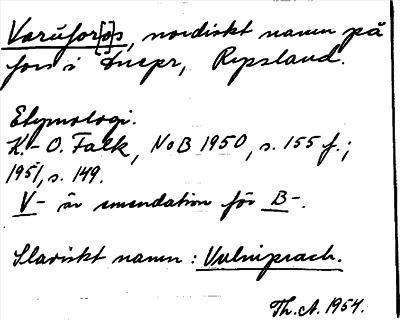 Varúfor[o]s, nordiskt namn på
fors i Dnepr, Ryssland.
Etymologi.
K.-O. Falk, NoB 1950, s. 155 f.;
1951, s. 149.
V- är emendation för B-.
Slaviskt namn: Vulniprach.
Th. A. 1954.